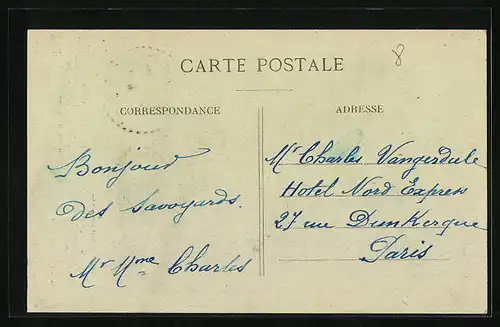 8
CARTE POSTALE
CORRESPONDANCE
ADRESSE
Bonjour
des Savoyards.
Mr Mme Charles
Mr Charles Vangerdale
Hotel Nord Express
27 rue Dunkerque
Paris